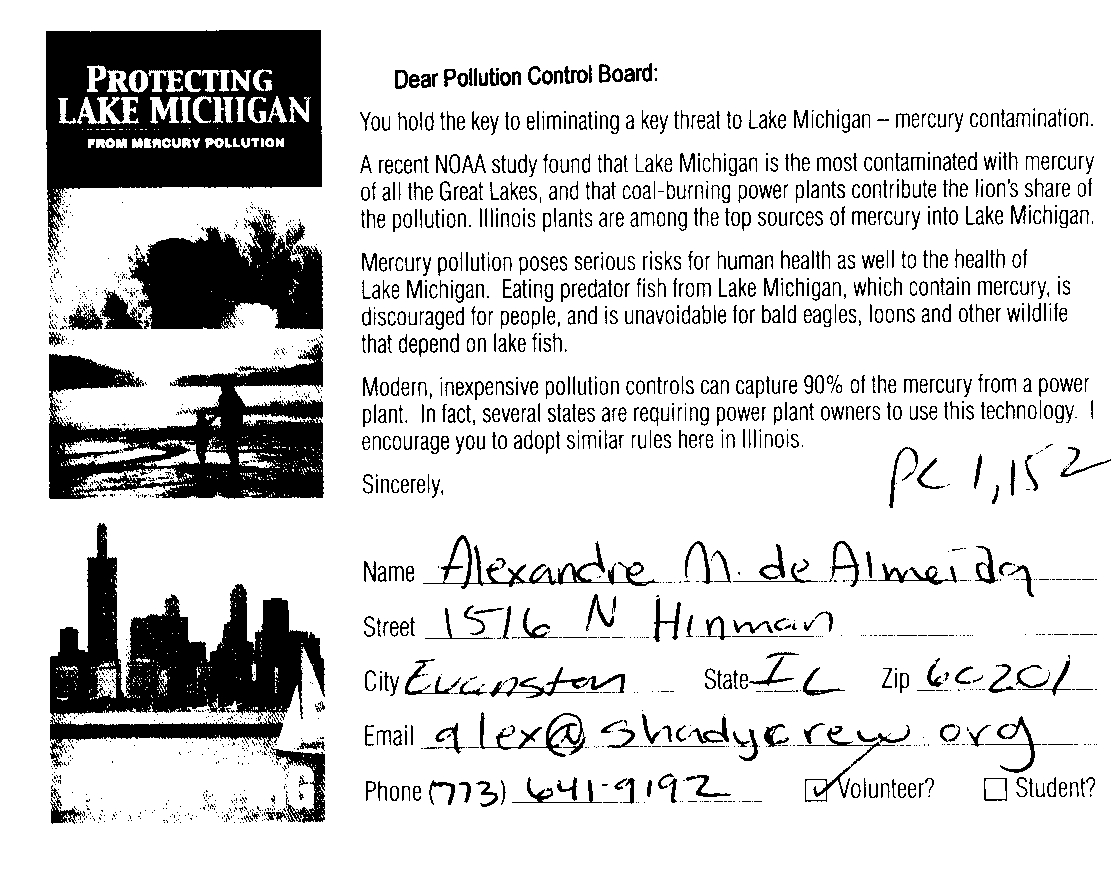 PROTECTING
LAKE MICHIGAN
FROM MERCURY POLLUTION
Dear Pollution Control Board:
You hold the key to eliminating a key threat to Lake Michigan – mercury contamination.
A recent NOAA study found that Lake Michigan is the most contaminated with mercury
of all the Great Lakes, and that coal-burning power plants contribute the lion's share of
the pollution. Illinois plants are among the top sources of mercury into Lake Michigan.
Mercury pollution poses serious risks for human health as well to the health of
Lake Michigan. Eating predator fish from Lake Michigan, which contain mercury, is
discouraged for people, and is unavoidable for bald eagles, loons and other wildlife
that depend on lake fish.
Modern, inexpensive pollution controls can capture 90% of the mercury from a power
plant. In fact, several states are requiring power plant owners to use this technology. I
encourage you to adopt similar rules here in Illinois.
PC 1,152
Sincerely,
Name Alexandre M. de Almeida
Street 1516 N Hinman
City Evanston State IL Zip 60201
Email alex@shadycrew org
Phone (773) 641-9192 Volunteer? Student?